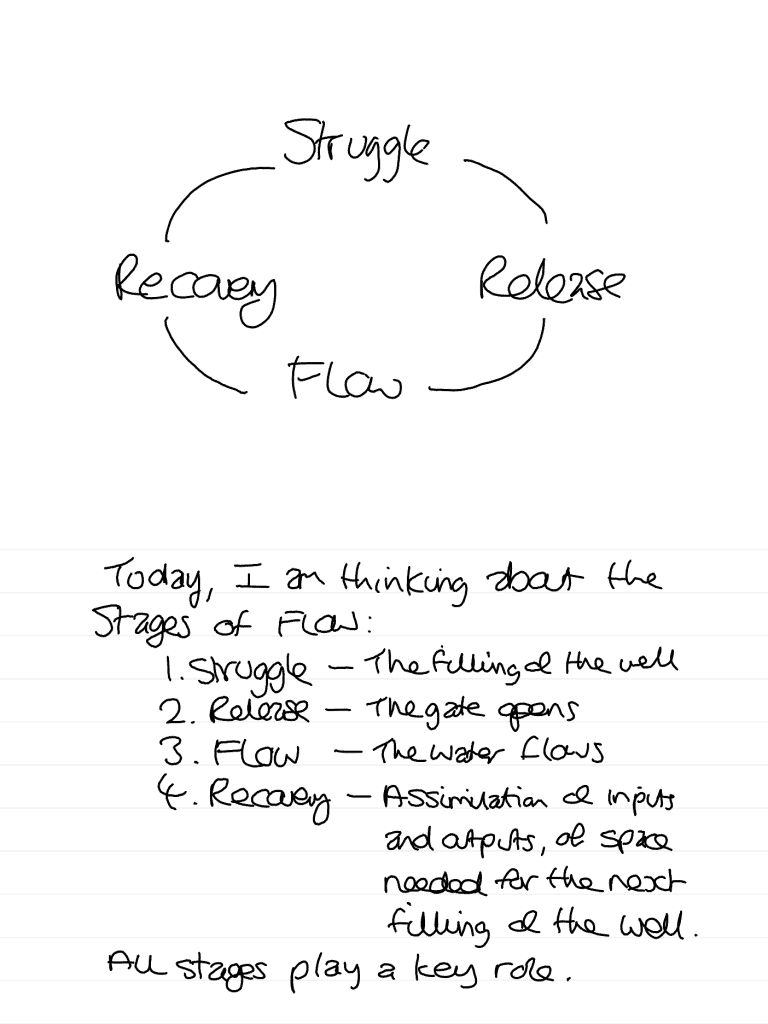 Struggle
Recovery
Release
Flow
Today, I am thinking about the
Stages of Flow:
1. Struggle – The filling of the well
2. Release – The gate opens
3. Flow – The water flows
4. Recovery – Assimilation of inputs
and outputs, of space
needed for the next
filling of the well.
All stages play a key role.